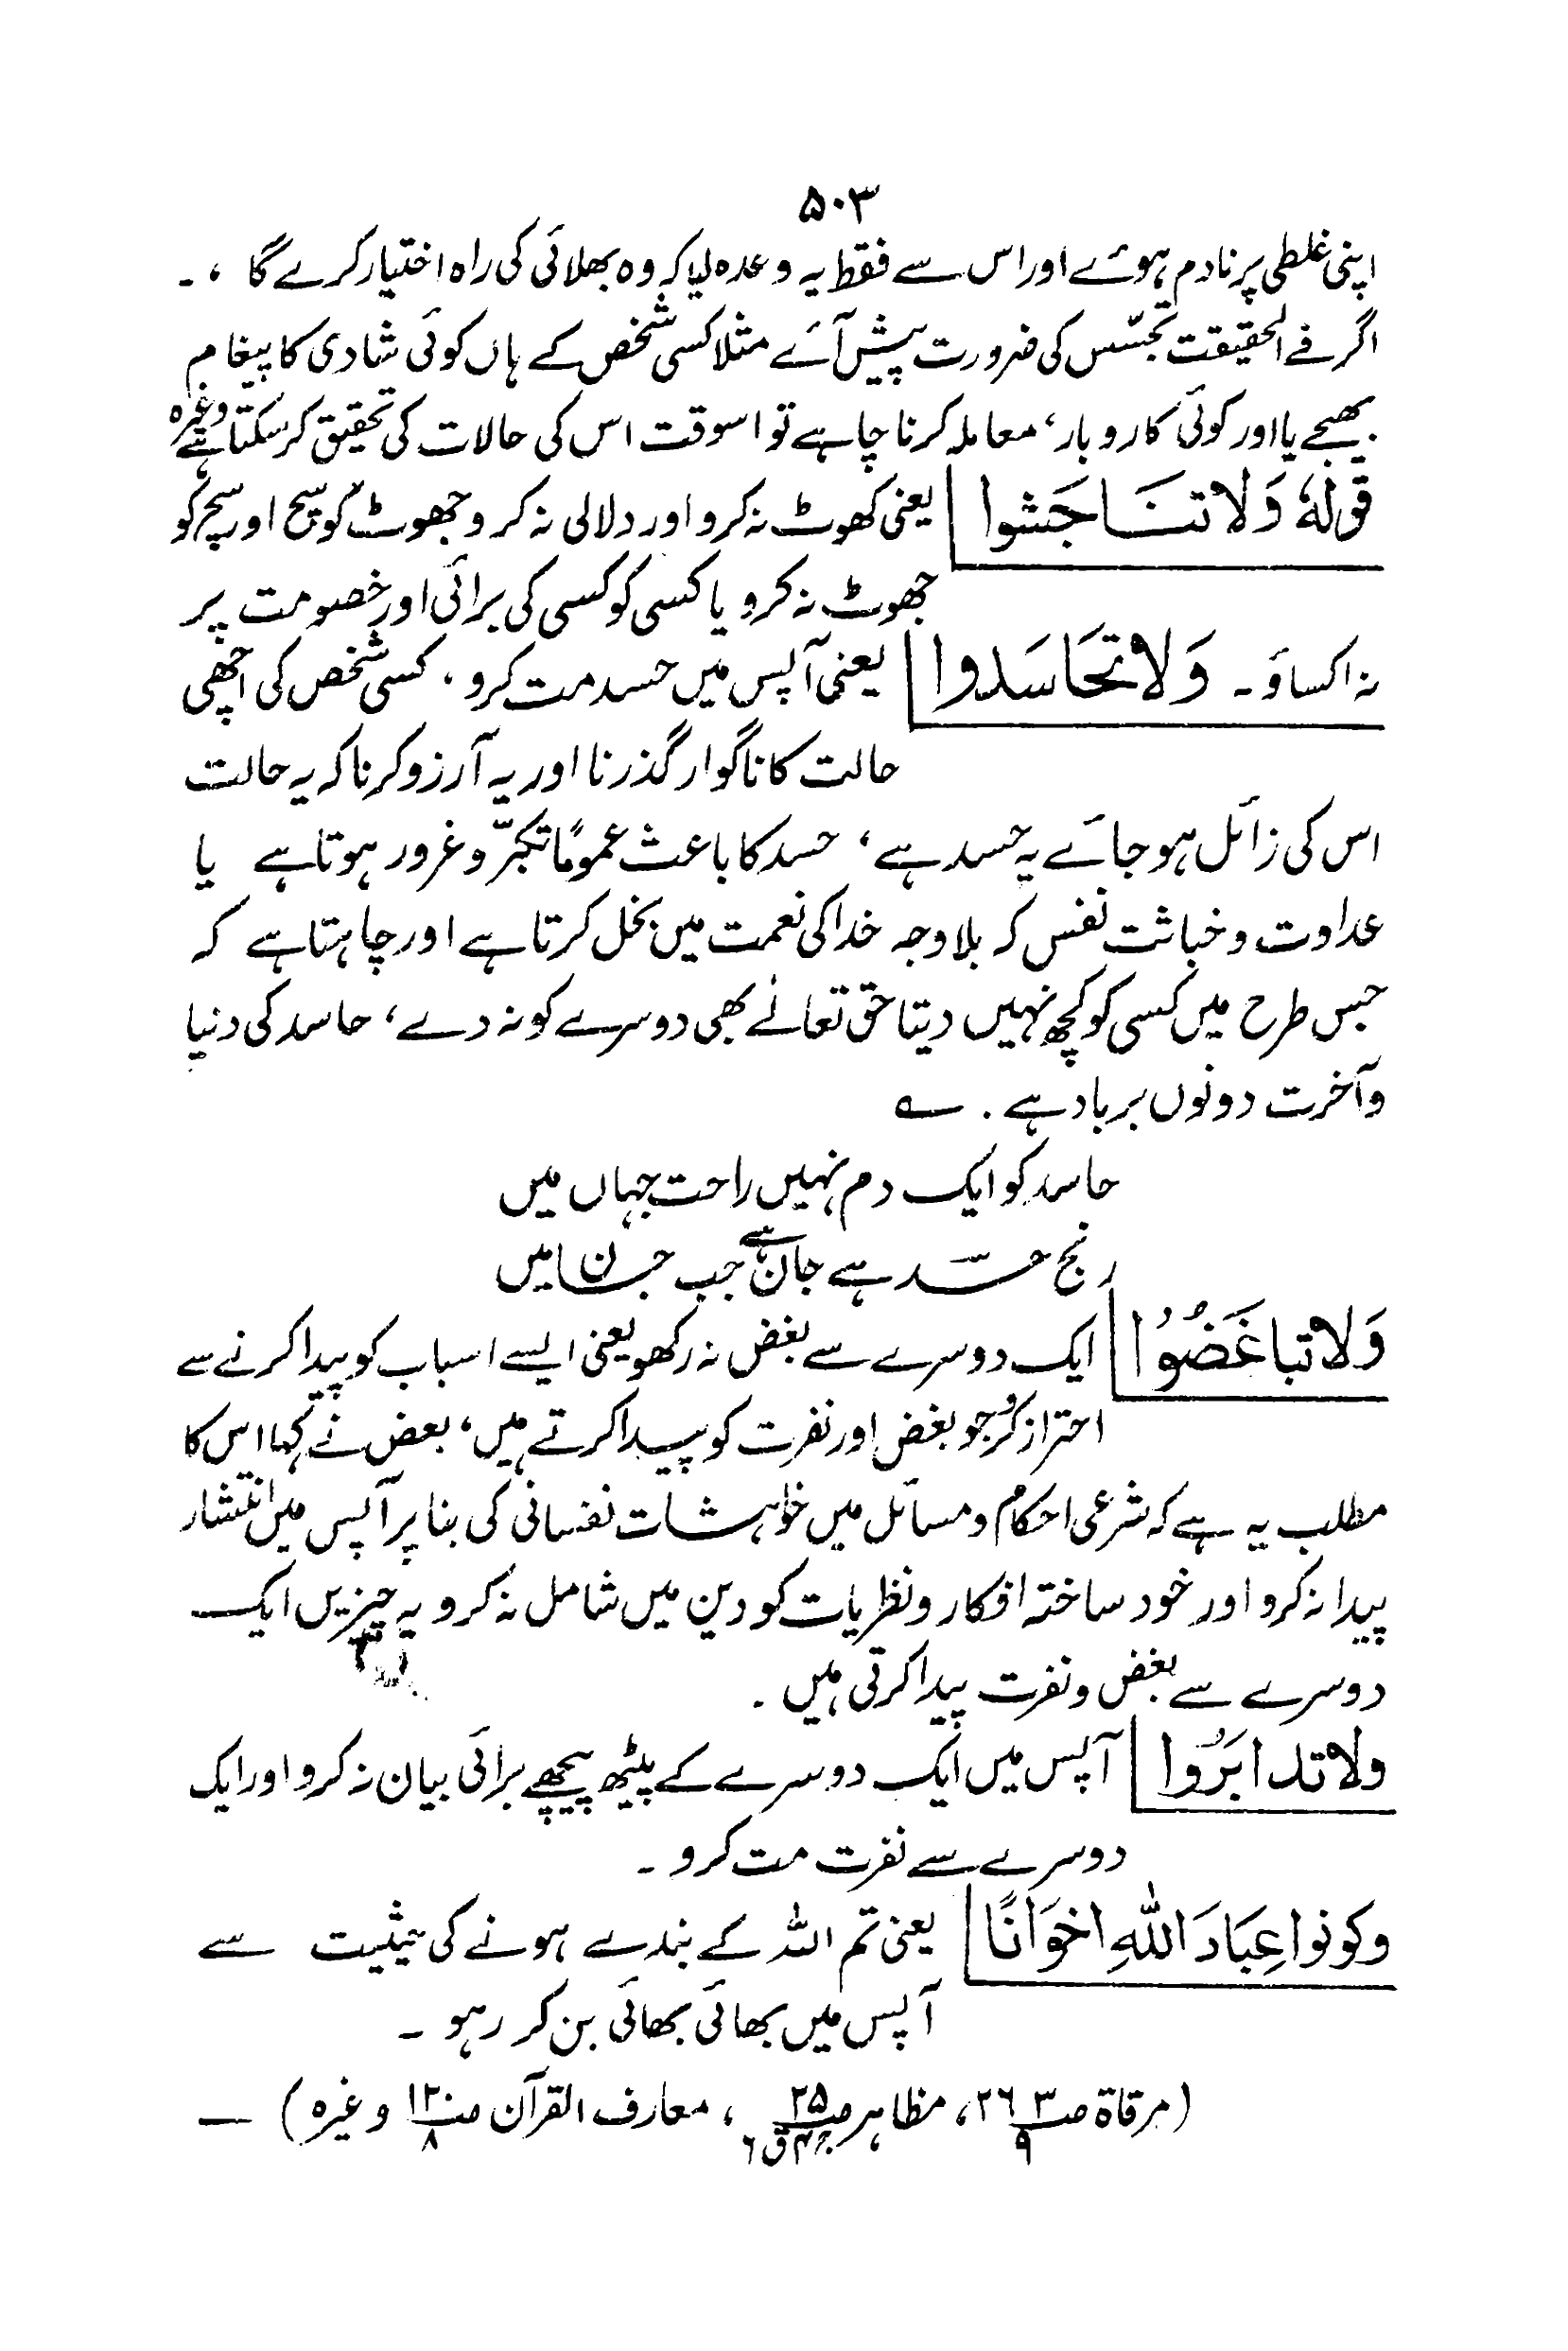 ۵۰۳
اپنی غلطی پر نادم ہوئے اور اس سے فقط یہ وعدہ لیا کہ وہ بھلائی کی راہ اختیار کرے گا ، ۔
اگر فے الحقیقت تجسّس کی ضرورت پیش آئے مثلا کسی شخص کے ہاں کوئی شادی کا پیغام
بھیجے یا اور کوئی کاروبار ، معاملہ کرنا چاہے تو اسوقت اس کی حالات کی تحقیق کرسکتا ہے وغیرہ
قولہٗ وَلا تنَاجَشوا یعنی کھوٹ نہ کرو اور دلالی نہ کرو جھوٹ کو سچ اور سچ کو
جھوٹ نہ کرو یا کسی کو کسی کی برائی اور خصومت پر
نہ اکساؤ ۔ وَلا تحَاسَدوا یعنی آپس میں حسد مت کرو ، کسی شخص کی اچھی
حالت کا ناگوار گذرنا اور یہ آرزو کرنا کہ یہ حالت
اس کی زائل ہوجائے یہ حسد ہے ، حسد کا باعث عمومًا تکبّر و غرور ہوتا ہے یا
عداوت و خباثت نفس کہ بلا وجہ خدا کی نعمت میں بخل کرتا ہے اور چاہتا ہے کہ
جس طرح میں کسی کو کچھ نہیں دیتا حق تعالےٰ بھی دوسرے کو نہ دے ، حاسد کی دنیا
و آخرت دونوں برباد ہے ۔ ؎
حاسد کو ایک دم نہیں راحت جہاں میں
رنج حسد ہے جان ہے جب جسان میں
وَلا تباغَضُوْا ایک دوسرے سے بغض نہ رکھو یعنی ایسے اسباب کو پیدا کرنے سے
احتراز کرو جو بغض اور نفرت کو پیدا کرتے ہیں ، بعض نے کہا اس کا
مطلب یہ ہے کہ شرعی احکام و مسائل میں خواہشات نفسانی کی بنا پر آپس میں انتشار
پیدا نہ کرو اور خود ساختہ افکار و نظریات کو دین میں شامل نہ کرو یہ چیزیں ایک
دوسرے سے بغض و نفرت پیدا کرتی ہیں ۔
ولا تدابَرُوا آپس میں ایک دوسرے کے پیٹھ پیچھے برائی بیان نہ کرو اور ایک
دوسرے سے نفرت مت کرو ۔
وکونوا عِبَادَ اللهِ اخوَانًا یعنی تم اللہ کے بندے ہونے کی حیثیت سے
آپس میں بھائی بھائی بن کر رہو ۔
(مرقاة صـ ۲۶۳/۹ ، مظاہر صـ ۲۵ ق ۶ ، معارف القرآن صـ ۱۲۰/۸ وغیرہ) ــ